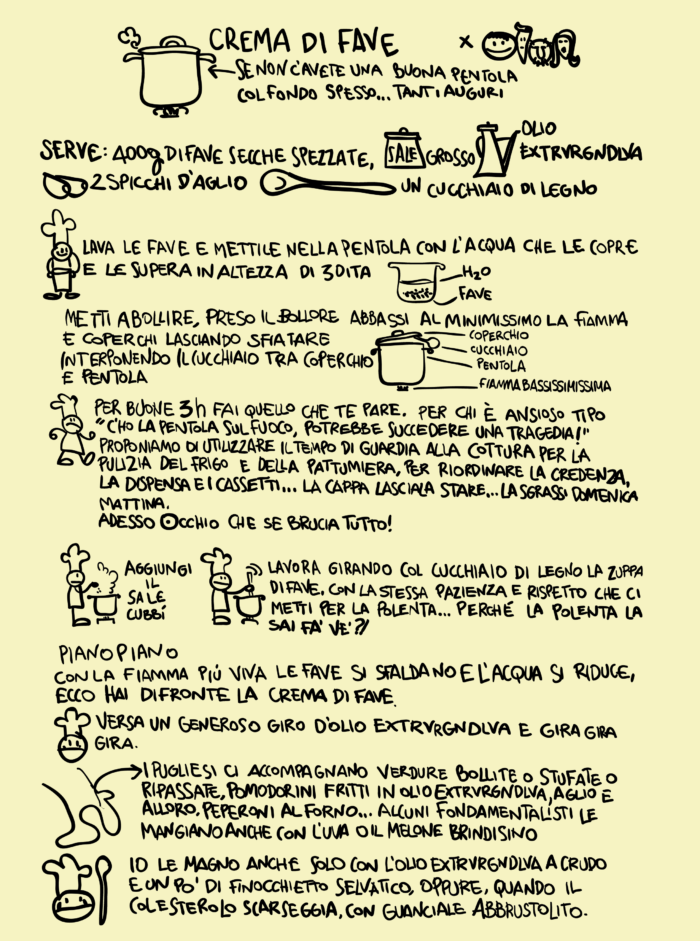 CREMA DI FAVE x
SE NON C'AVETE UNA BUONA PENTOLA
COL FONDO SPESSO... TANTI AUGURI
SERVE: 400g DI FAVE SECCHE SPEZZATE, SALE GROSSO OLIO
EXTRVRGNDLVA
2 SPICCHI D'AGLIO UN CUCCHIAIO DI LEGNO
LAVA LE FAVE E METTILE NELLA PENTOLA CON L'ACQUA CHE LE COPRE
E LE SUPERA IN ALTEZZA DI 3 DITA
H2O
FAVE
METTI A BOLLIRE, PRESO IL BOLLORE ABBASSI AL MINIMISSIMO LA FIAMMA
E COPERCHI LASCIANDO SFIATARE
INTERPONENDO IL CUCCHIAIO TRA COPERCHIO
E PENTOLA
COPERCHIO
CUCCHIAIO
PENTOLA
FIAMMA BASSISSIMISSIMA
PER BUONE 3h FAI QUELLO CHE TE PARE. PER CHI È ANSIOSO TIPO
"C'HO LA PENTOLA SUL FUOCO, POTREBBE SUCCEDERE UNA TRAGEDIA!"
PROPONIAMO DI UTILIZZARE IL TEMPO DI GUARDIA ALLA COTTURA PER LA
PULIZIA DEL FRIGO E DELLA PATTUMIERA, PER RIORDINARE LA CREDENZA,
LA DISPENSA E I CASSETTI... LA CAPPA LASCIALA STARE... LA SGRASSI DOMENICA
MATTINA.
ADESSO OCCHIO CHE SE BRUCIA TUTTO!
AGGIUNGI
IL
SALE
CUBBÍ
LAVORA GIRANDO COL CUCCHIAIO DI LEGNO LA ZUPPA
DI FAVE, CON LA STESSA PAZIENZA E RISPETTO CHE CI
METTI PER LA POLENTA... PERCHÉ LA POLENTA LA
SAI FA' VE'?!
PIANO PIANO
CON LA FIAMMA PIÙ VIVA LE FAVE SI SFALDANO E L'ACQUA SI RIDUCE,
ECCO HAI DI FRONTE LA CREMA DI FAVE.
VERSA UN GENEROSO GIRO D'OLIO EXTRVRGNDLVA E GIRA GIRA
GIRA.
I PUGLIESI CI ACCOMPAGNANO VERDURE BOLLITE O STUFATE O
RIPASSATE, POMODORINI FRITTI IN OLIO EXTRVRGNDLVA, AGLIO E
ALLORO, PEPERONI AL FORNO... ALCUNI FONDAMENTALISTI LE
MANGIANO ANCHE CON L'UVA O IL MELONE BRINDISINO
IO LE MAGNO ANCHE SOLO CON L'OLIO EXTRVRGNDLVA A CRUDO
E UN PO' DI FINOCCHIETTO SELVATICO, OPPURE, QUANDO IL
COLESTEROLO SCARSEGGIA, CON GUANCIALE ABBRUSTOLITO.